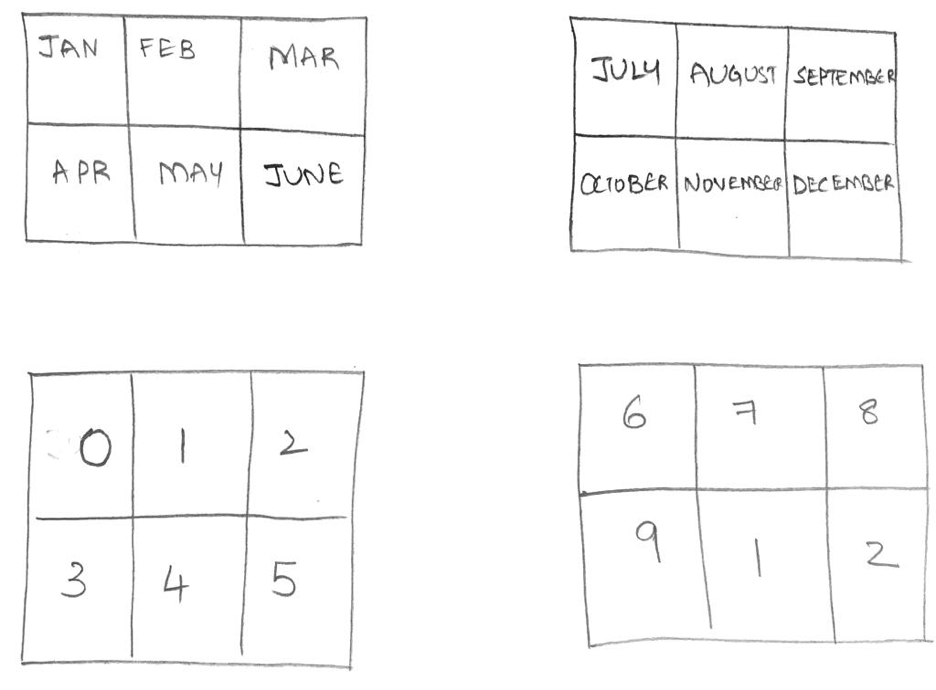 JAN FEB MAR
APR MAY JUNE
JULY AUGUST SEPTEMBER
OCTOBER NOVEMBER DECEMBER
0 1 2
3 4 5
6 7 8
9 1 2